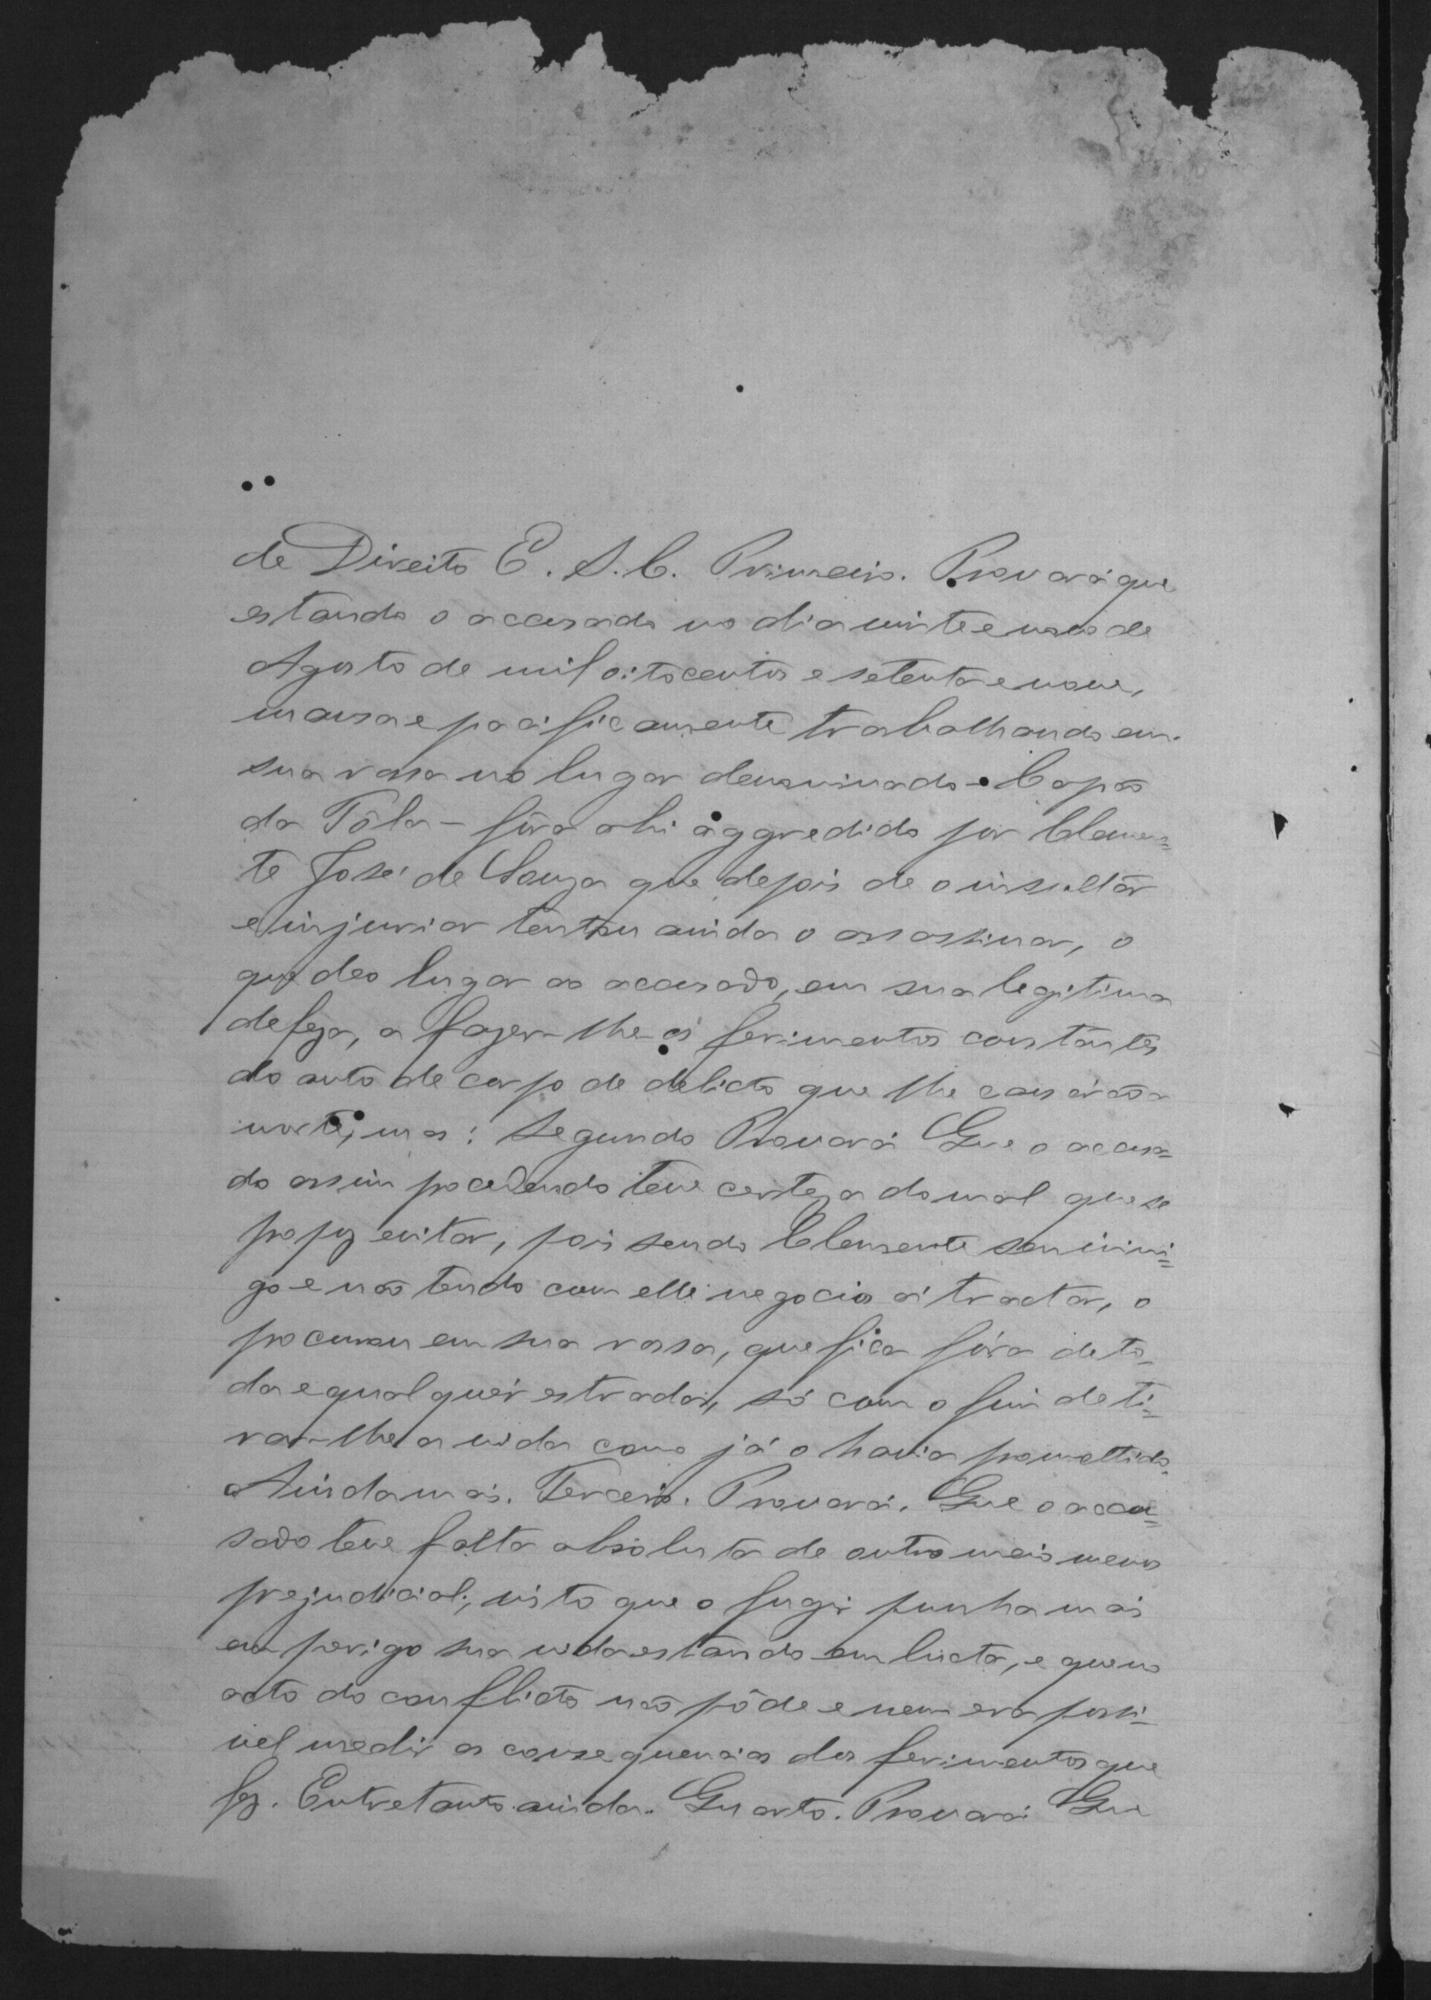 de Direito E. S. C. Primeiro. Provará que
estando o accusado no dia vinte e nove de
Agosto de mil oitocentos e setenta e nove,
mansa e pacificamente trabalhando em
sua rossa no lugar denominado - Capão
da Tóla - fôra ahi aggredido por Clemen=
te José de Souza que depois de o insultar
e injuriar tentou ainda o assassinar, o
que deo lugar ao accusado, em sua legitima
defeza, a fazer-lhe os ferimentos constantes
do auto de corpo de delicto que lhe causarão a
morte, mas: Segundo Provará Que o accusa=
do assim procedendo teve certeza do mal que se
propoz evitar, pois sendo Clemente seu inimi=
go e não tendo com elle negocio á tractar, o
procurou em sua rossa, que fica fóra de to-
da e qualquér estrada, só com o fim de ti=
rar-lhe a vida como já o havia promettido.
Ainda mais. Terceiro. Provará. Que o accu=
sado teve falta absoluta de outro meio menos
prejudicial; visto que o fugir punha mais
em perigo sua vida estando em lucta, e que no
acto do conflicto não pôde e nem era possi=
vel medir as consequencias dos ferimentos que
fez. Entretanto ainda. Quarto. Provará Que